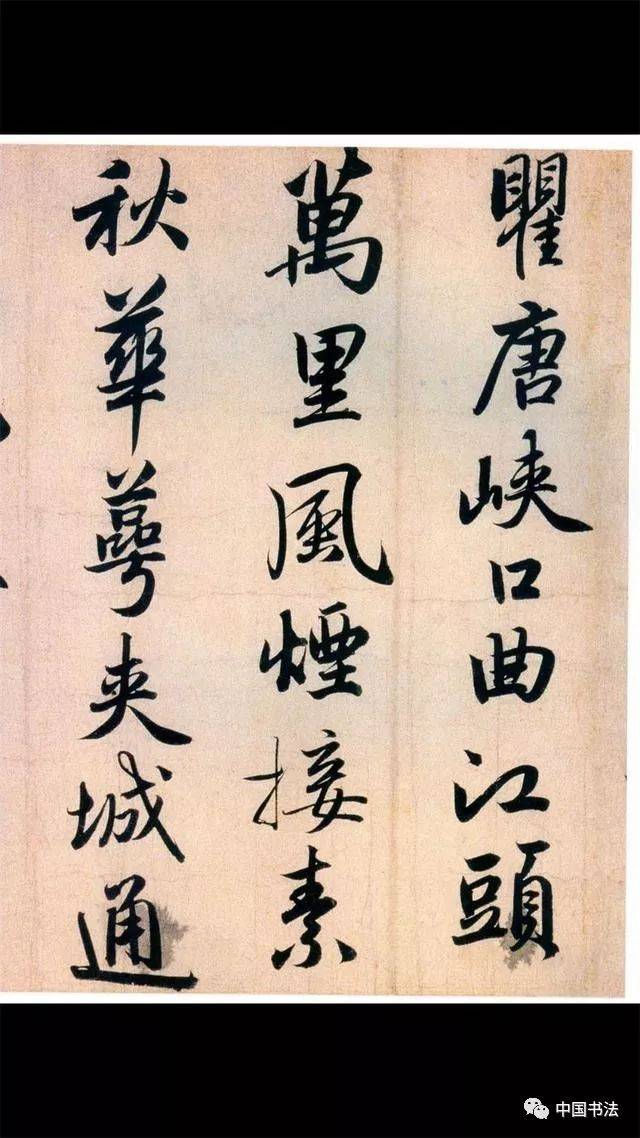 瞿唐峡口曲江頭
萬里風煙接素
秋華萼夾城通
中国书法